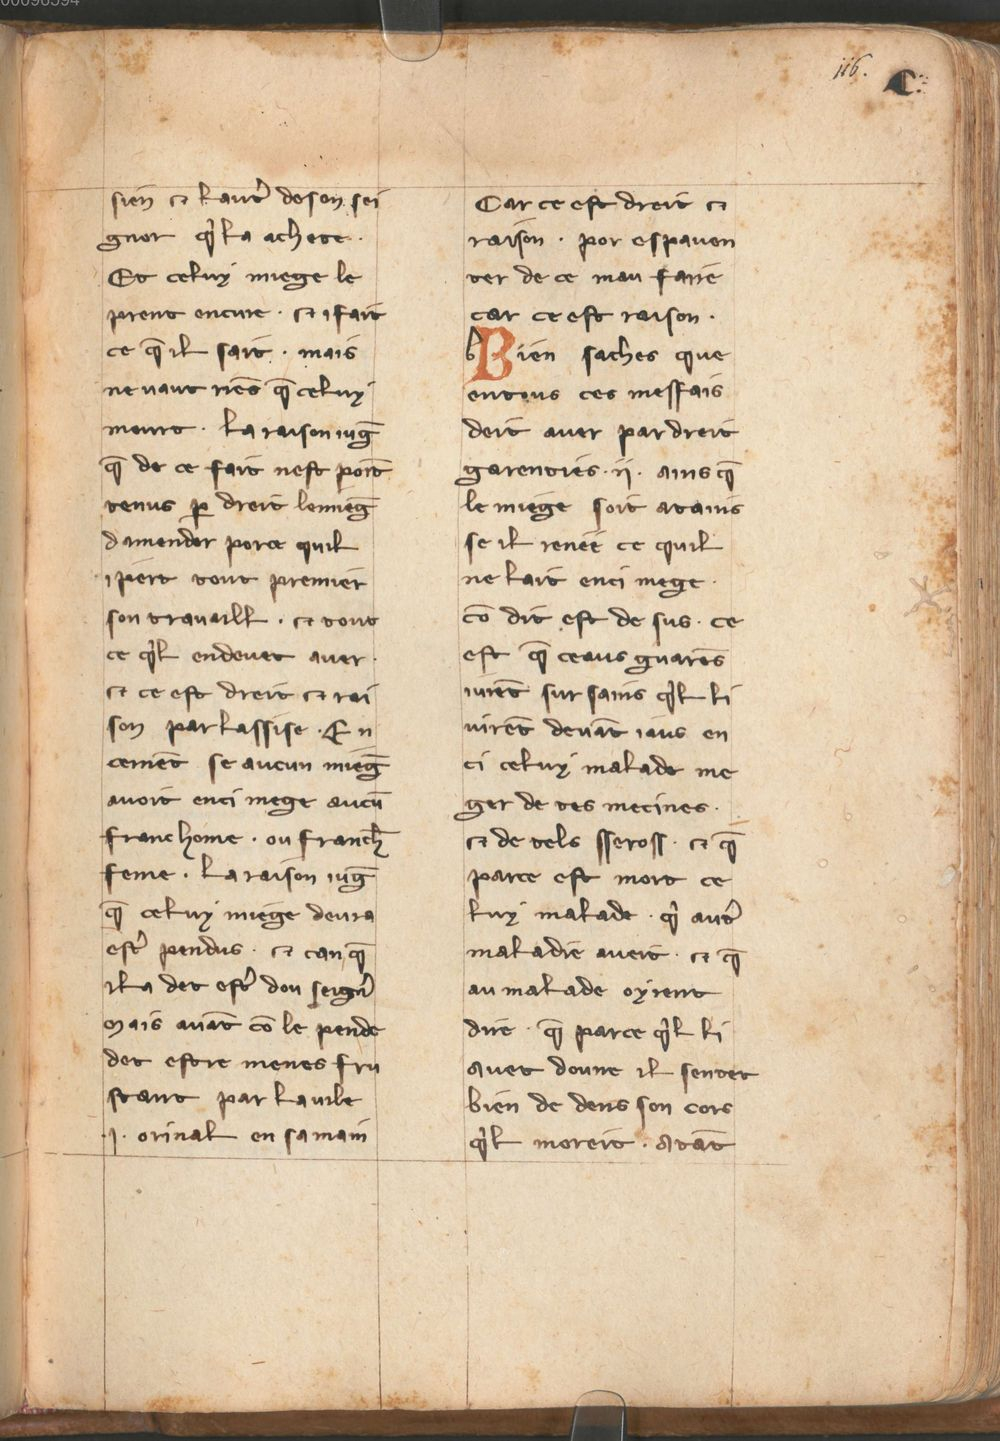 00096594
116.
C.
sien ⁊ lautr̄ de son sei
gnor q̇ la achete.
Et celuy miege le
prent encure · ⁊ i fait
ce q̄ il sait · mais
ne vaut riēs q̄ celuy
meurt · la raison iuḡ
q̄ de ce fait nest point
tenus ꝑ dreit le mieḡ
damender porce quil
i pert tout premier
son travaill · ⁊ tout
ce q̇l endevet aver ·
⁊ ce est dreit ⁊ rai
son par lassise · En
cemēt se aucun mieḡ
avoit enci mege aucū
franc home · ou franch̄
feme · la raison iuḡ
q̄ celuy miege devra
estr̄ pendus · ⁊ can q̄
il a det estr̄ dou seign̄r
mais avāt cō le pende
det estre menes fru
stant par la vile
·j· orinal en sa main
Car ce est dreit ⁊
raison · por espaven
ter de ce mau faire
car ce est raison ·
b Bien saches que
en tous ces messfais
deit aver par dreit
garenties · ij · ains q̄
le miege soit atains
se il renee ce quil
ne lait enci mege ·
cō dit est de sus · ce
est q̄ ceaus guarēs
iurēt sur sains q̇l li
virēt devāt iaus en
ci celuy malade me
ger de tes mecines ·
⁊ de tels · ⁊ q̄
par ce est mort ce
luy malade · q̇ autr̄
maladie aveit · ⁊ q̄
au malade oyrent
dire · q̄ par ce q̇l li
avet donne il sentet
bien de dens son cors
q̇l moreit · Atāt